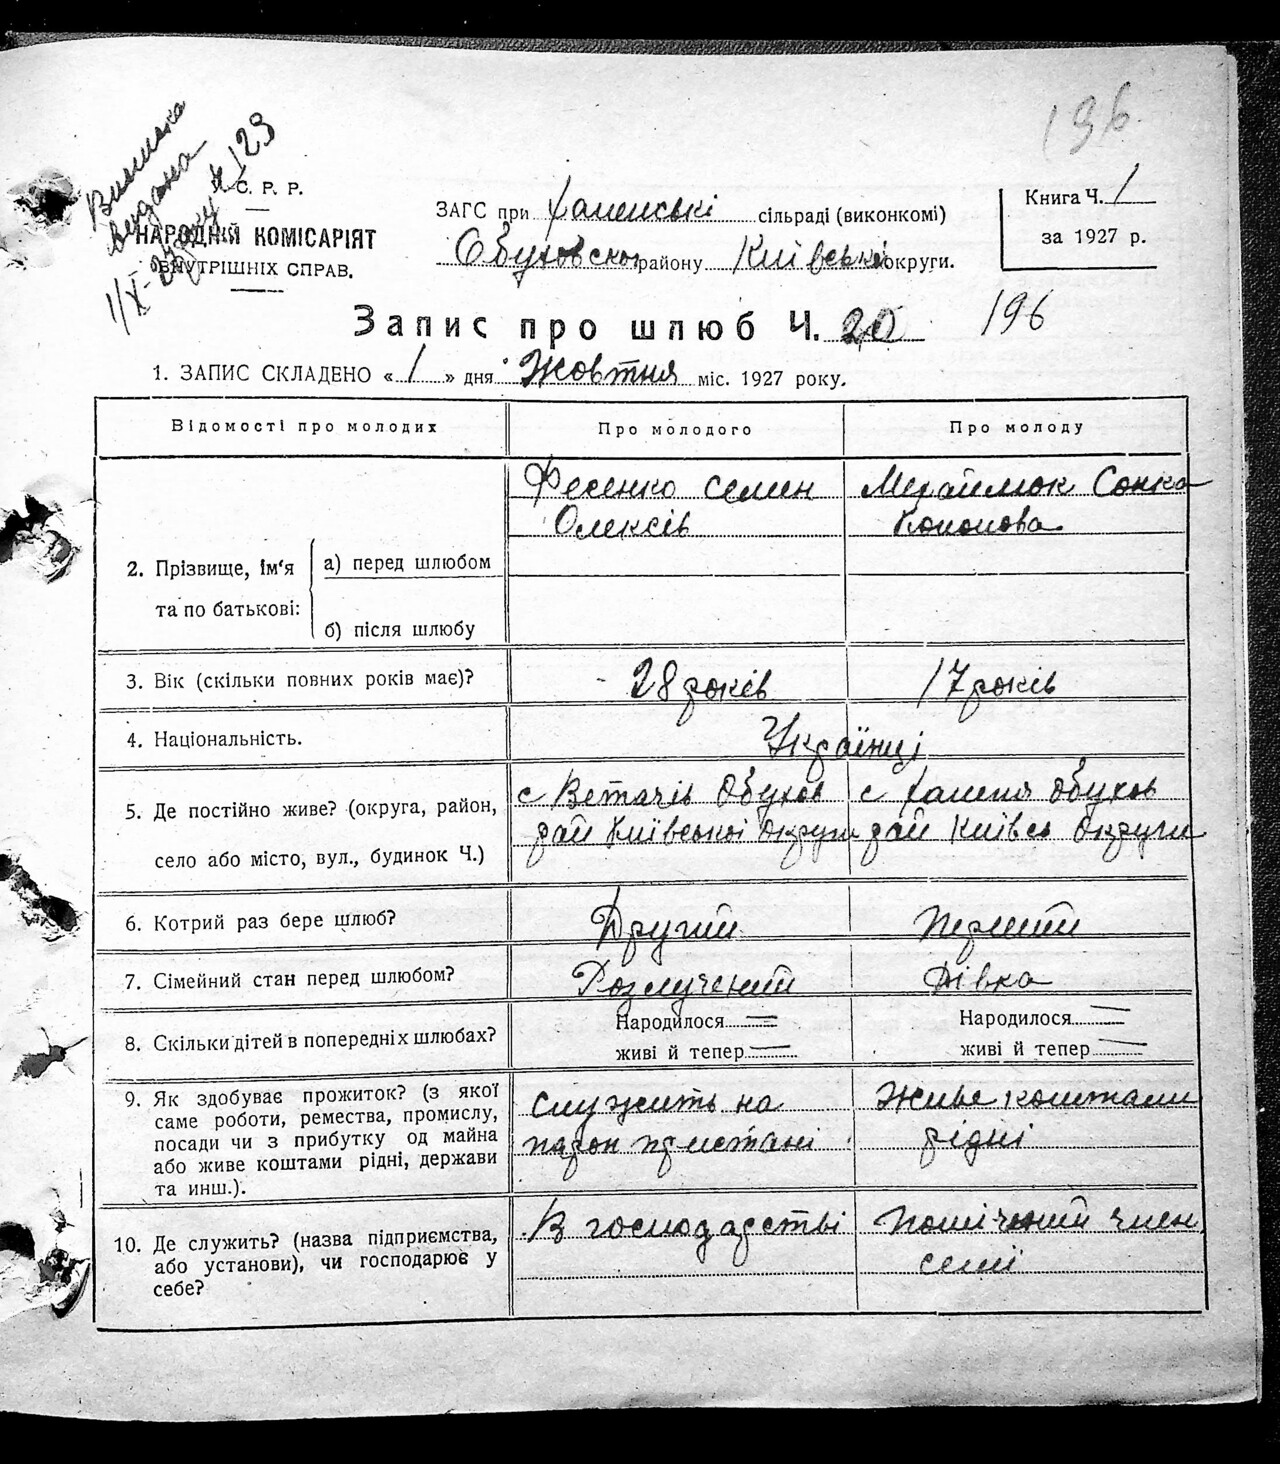 196.
Виписка
видана
1/X-27 року Ч 123
У. С. Р. Р.
НАРОДНІЙ КОМІСАРІЯТ
ВНУТРІШНІХ СПРАВ.
ЗАГС при Халепські сільраді (виконкомі)
Обуховског району Київські округи.
Книга Ч. 1
за 1927 р.
Запис про шлюб Ч. 20
196
1. ЗАПИС СКЛАДЕНО « 1 » дня Жовтня міс. 1927 року.
Відомості про молодих Про молодого Про молоду
Фесенко Семен Сонка
Олексів Кононова
2. Прізвище, ім'я та по батькові:
а) перед шлюбом
б) після шлюбу
3. Вік (скільки повних років має)? 28 років 17 років
4. Національність. Українці
5. Де постійно живе? (округа, район, с Витачів Обухов с Халепя Обухов
село або місто, вул., будинок Ч.) рай Київської округи рай Київсь округи
6. Котрий раз бере шлюб? Другий Перший
7. Сімейний стан перед шлюбом? Розлучений Дівка
8. Скільки дітей в попередніх шлюбах? Народилося — Народилося —
живі й тепер — живі й тепер —
9. Як здобуває прожиток? (з якої Служить на Живе коштами
саме роботи, ремества, промислу,
посади чи з прибутку од майна пароп пристані рідні
або живе коштами рідні, держави
та инш.).
10. Де служить? (назва підприємства, В господарстві Помічений член
або установи), чи господарює у семї
себе?